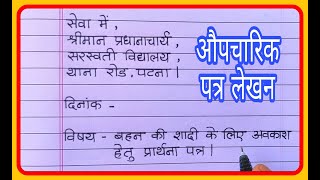 सेवा में ,
श्रीमान प्रधानाचार्य ,
सरस्वती विद्यालय ,
थाना रोड , पटना |
औपचारिक
पत्र लेखन
दिनांक -
विषय - बहन की शादी के लिए अवकाश
हेतु प्रार्थना पत्र |